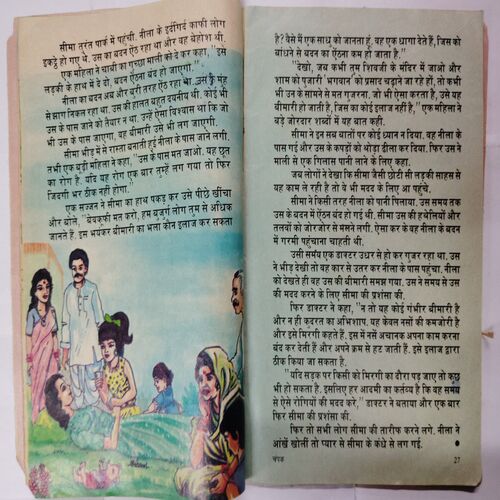 सीमा तुरंत पार्क में पहुंची. नीला के इर्दगिर्द काफी लोग
इकट्ठे हो गए थे. उस का बदन ऐंठ रहा था और वह बेहोश थी.
एक महिला ने चाबी का गुच्छा माली को दे कर कहा, "इसे
लड़की के हाथ में दे दो, बदन ऐंठना बंद हो जाएगा."
नीला का बदन अब और बुरी तरह ऐंठ रहा था. उस के मुंह
से झाग निकल रहा था. उस की हालत बहुत दयनीय थी. कोई भी
उस के पास जाने को तैयार न था. उन्हें ऐसा विश्वास था कि जो
भी उस के पास जाएगा, वह बीमारी उसे भी लग जाएगी.
सीमा भीड़ में से रास्ता बनाती हुई नीला के पास जाने लगी.
तभी एक बूढ़ी महिला ने कहा, "उस के पास मत जाओ. यह छूत
का रोग है. यदि यह रोग एक बार तुम्हें लग गया तो फिर
जिंदगी भर ठीक नहीं होगा."
एक सज्जन ने सीमा का हाथ पकड़ कर उसे पीछे खींचा
और बोले, "बेवकूफी मत करो, हम बुजुर्ग लोग तुम से अधिक
जानते हैं. इस भयंकर बीमारी का भला कौन इलाज कर सकता
है? वैसे मैं एक साधु को जानता हूं. वह एक धागा देते हैं, जिस को
बांधने से बदन का ऐंठना कम हो जाता है."
"देखो, जब कभी तुम शिवजी के मंदिर में जाओ और
शाम को पुजारी भगवान को प्रसाद चढ़ाने जा रहे हों, तो कभी
भी उन के सामने से मत गुजरना. जो भी ऐसा करता है, उसे यह
बीमारी हो जाती है, जिस का कोई इलाज नहीं है," एक महिला ने
बड़े जोरदार शब्दों में यह बात कही.
सीमा ने इन सब बातों पर कोई ध्यान न दिया. वह नीला के
पास गई और उस के कपड़ों को थोड़ा ढीला कर दिया. फिर उस ने
माली से एक गिलास पानी लाने के लिए कहा.
जब लोगों ने देखा कि सीमा जैसी छोटी सी लड़की साहस से
यह काम ले रही है तो वे भी मदद के लिए आ पहुंचे.
सीमा ने किसी तरह नीला को पानी पिलाया. उस समय तक
उस के बदन में ऐंठन बंद हो गई थी. सीमा उस की हथेलियों और
तलवों को जोरजोर से मसने लगी. ऐसा कर के वह नीला के बदन
में गरमी पहुंचाना चाहती थी.
उसी समय एक डाक्टर उधर से हो कर गुजर रहा था. उस
ने भीड़ देखी तो वह कार से उतर कर नीला के पास पहुंचा. नीला
को देखते ही वह उस की बीमारी समझ गया. उस ने समय से उस
की मदद करने के लिए सीमा की प्रशंसा की.
फिर डाक्टर ने कहा, "न तो यह कोई गंभीर बीमारी है
और न ही कुदरत का अभिशाप. यह केवल नसों की कमजोरी है
और इसे मिरगी कहते हैं. इस में नसें अचानक अपना काम करना
बंद कर देती हैं और अपने क्रम से हट जाती हैं. इसे इलाज द्वारा
ठीक किया जा सकता है.
"यदि सड़क पर किसी को मिरगी का दौरा पड़ जाए तो कुछ
भी हो सकता है. इसलिए हर आदमी का कर्तव्य है कि वह समय
से ऐसे रोगियों की मदद करे," डाक्टर ने बताया और एक बार
फिर सीमा की प्रशंसा की.
फिर तो सभी लोग सीमा की तारीफ करने लगे. नीला ने
आंखें खोलीं तो प्यार से सीमा के कंधे से लग गई. ●
चंपक
27